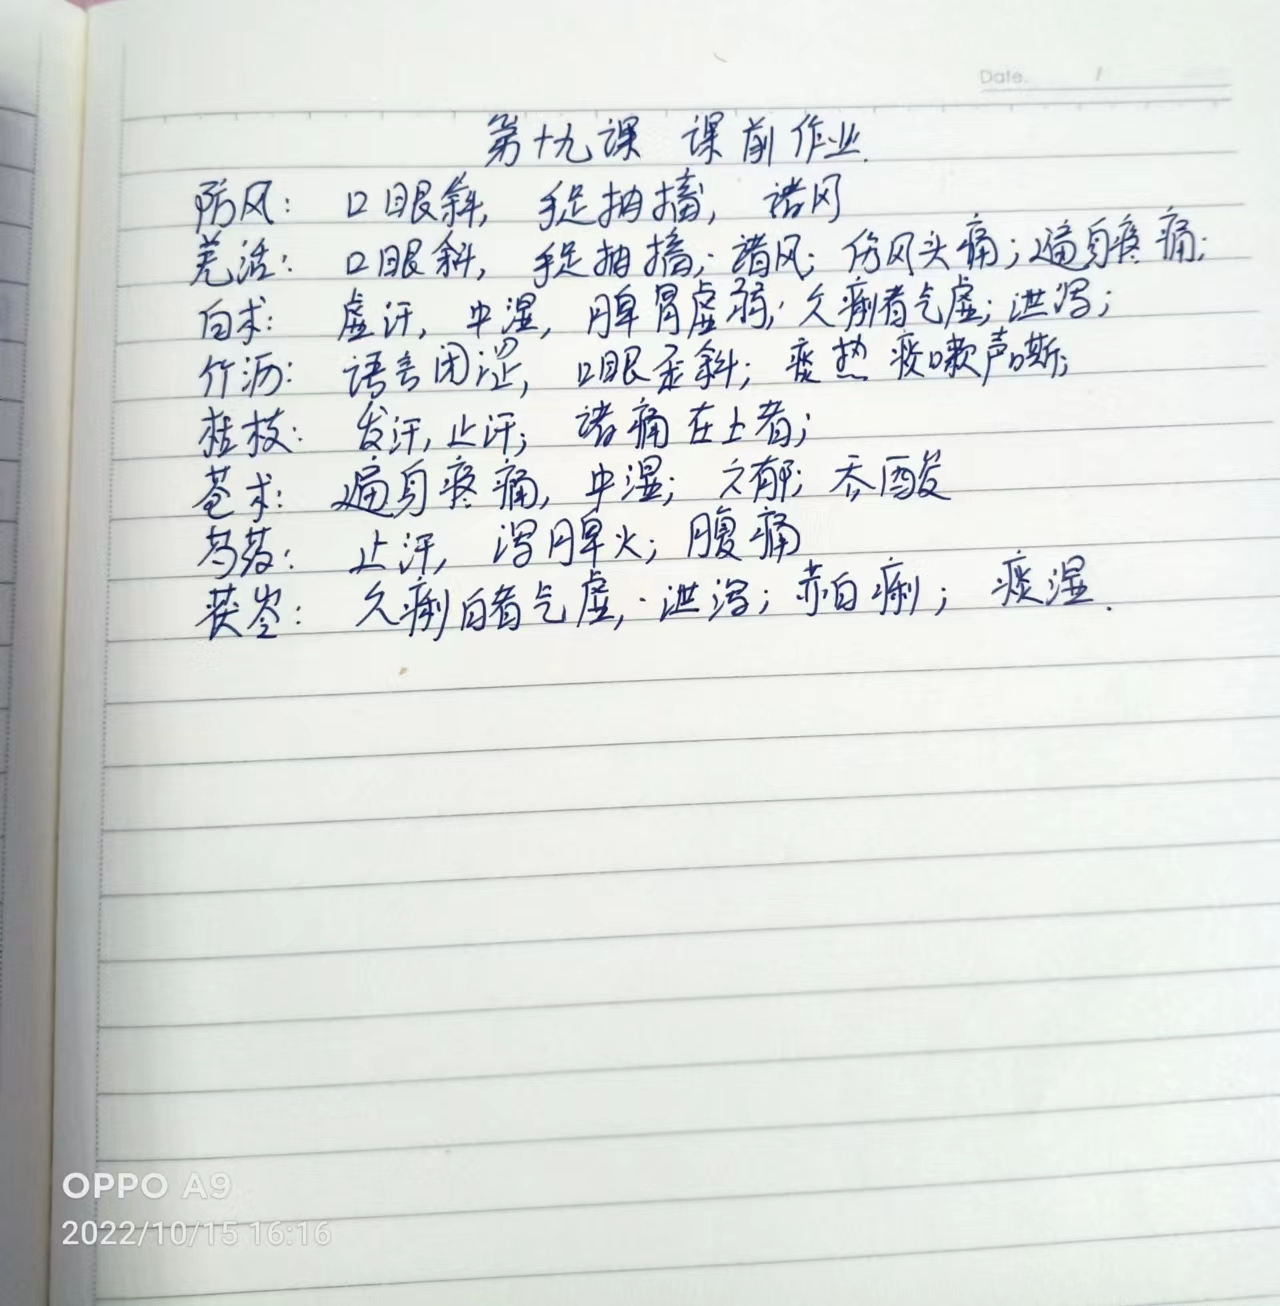 Date. /
第十九课 课前作业.
防风: 口眼斜, 手足抽搐, 诸风
羌活: 口眼斜, 手足抽搐; 诸风; 伤风头痛; 遍身疼痛;
白术: 虚汗, 中湿, 脾胃虚弱; 久痢者气虚; 泄泻;
竹沥: 语言闭涩, 口眼歪斜; 痰热 痰嗽声嘶;
桂枝: 发汗, 止汗; 诸痛在上者;
苍术: 遍身疼痛, 中湿; 六郁; 吞酸
芍药: 止汗, 泻脾火; 腹痛
茯苓: 久痢白者气虚, 泄泻; 赤白痢; 痰湿.
OPPO A9
2022/10/15 16:16